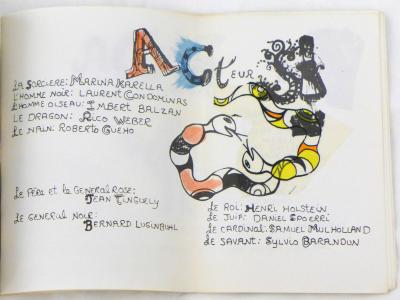 ACTEURS
LA SORCIERE: MARINA KARELLA
L'HOMME NOIR: LAURENT CONDOMINAS
L'HOMME OISEAU: IMBERT BALZAN
LE DRAGON: RICO WEBER
LE NAIN: ROBERTO GUEHO
LE PÈRE et LA GENERAL ROSE:
JEAN TINGUELY
LE GENERAL NOIR:
BERNARD LUGINBUHL
LE ROI: HENRI HOLSTEIN
LE JUIF: DANIEL SPOERRI
LE CARDINAL: SAMUEL MULHOLLAND
LE SAVANT: SYLVIO BARANDUN